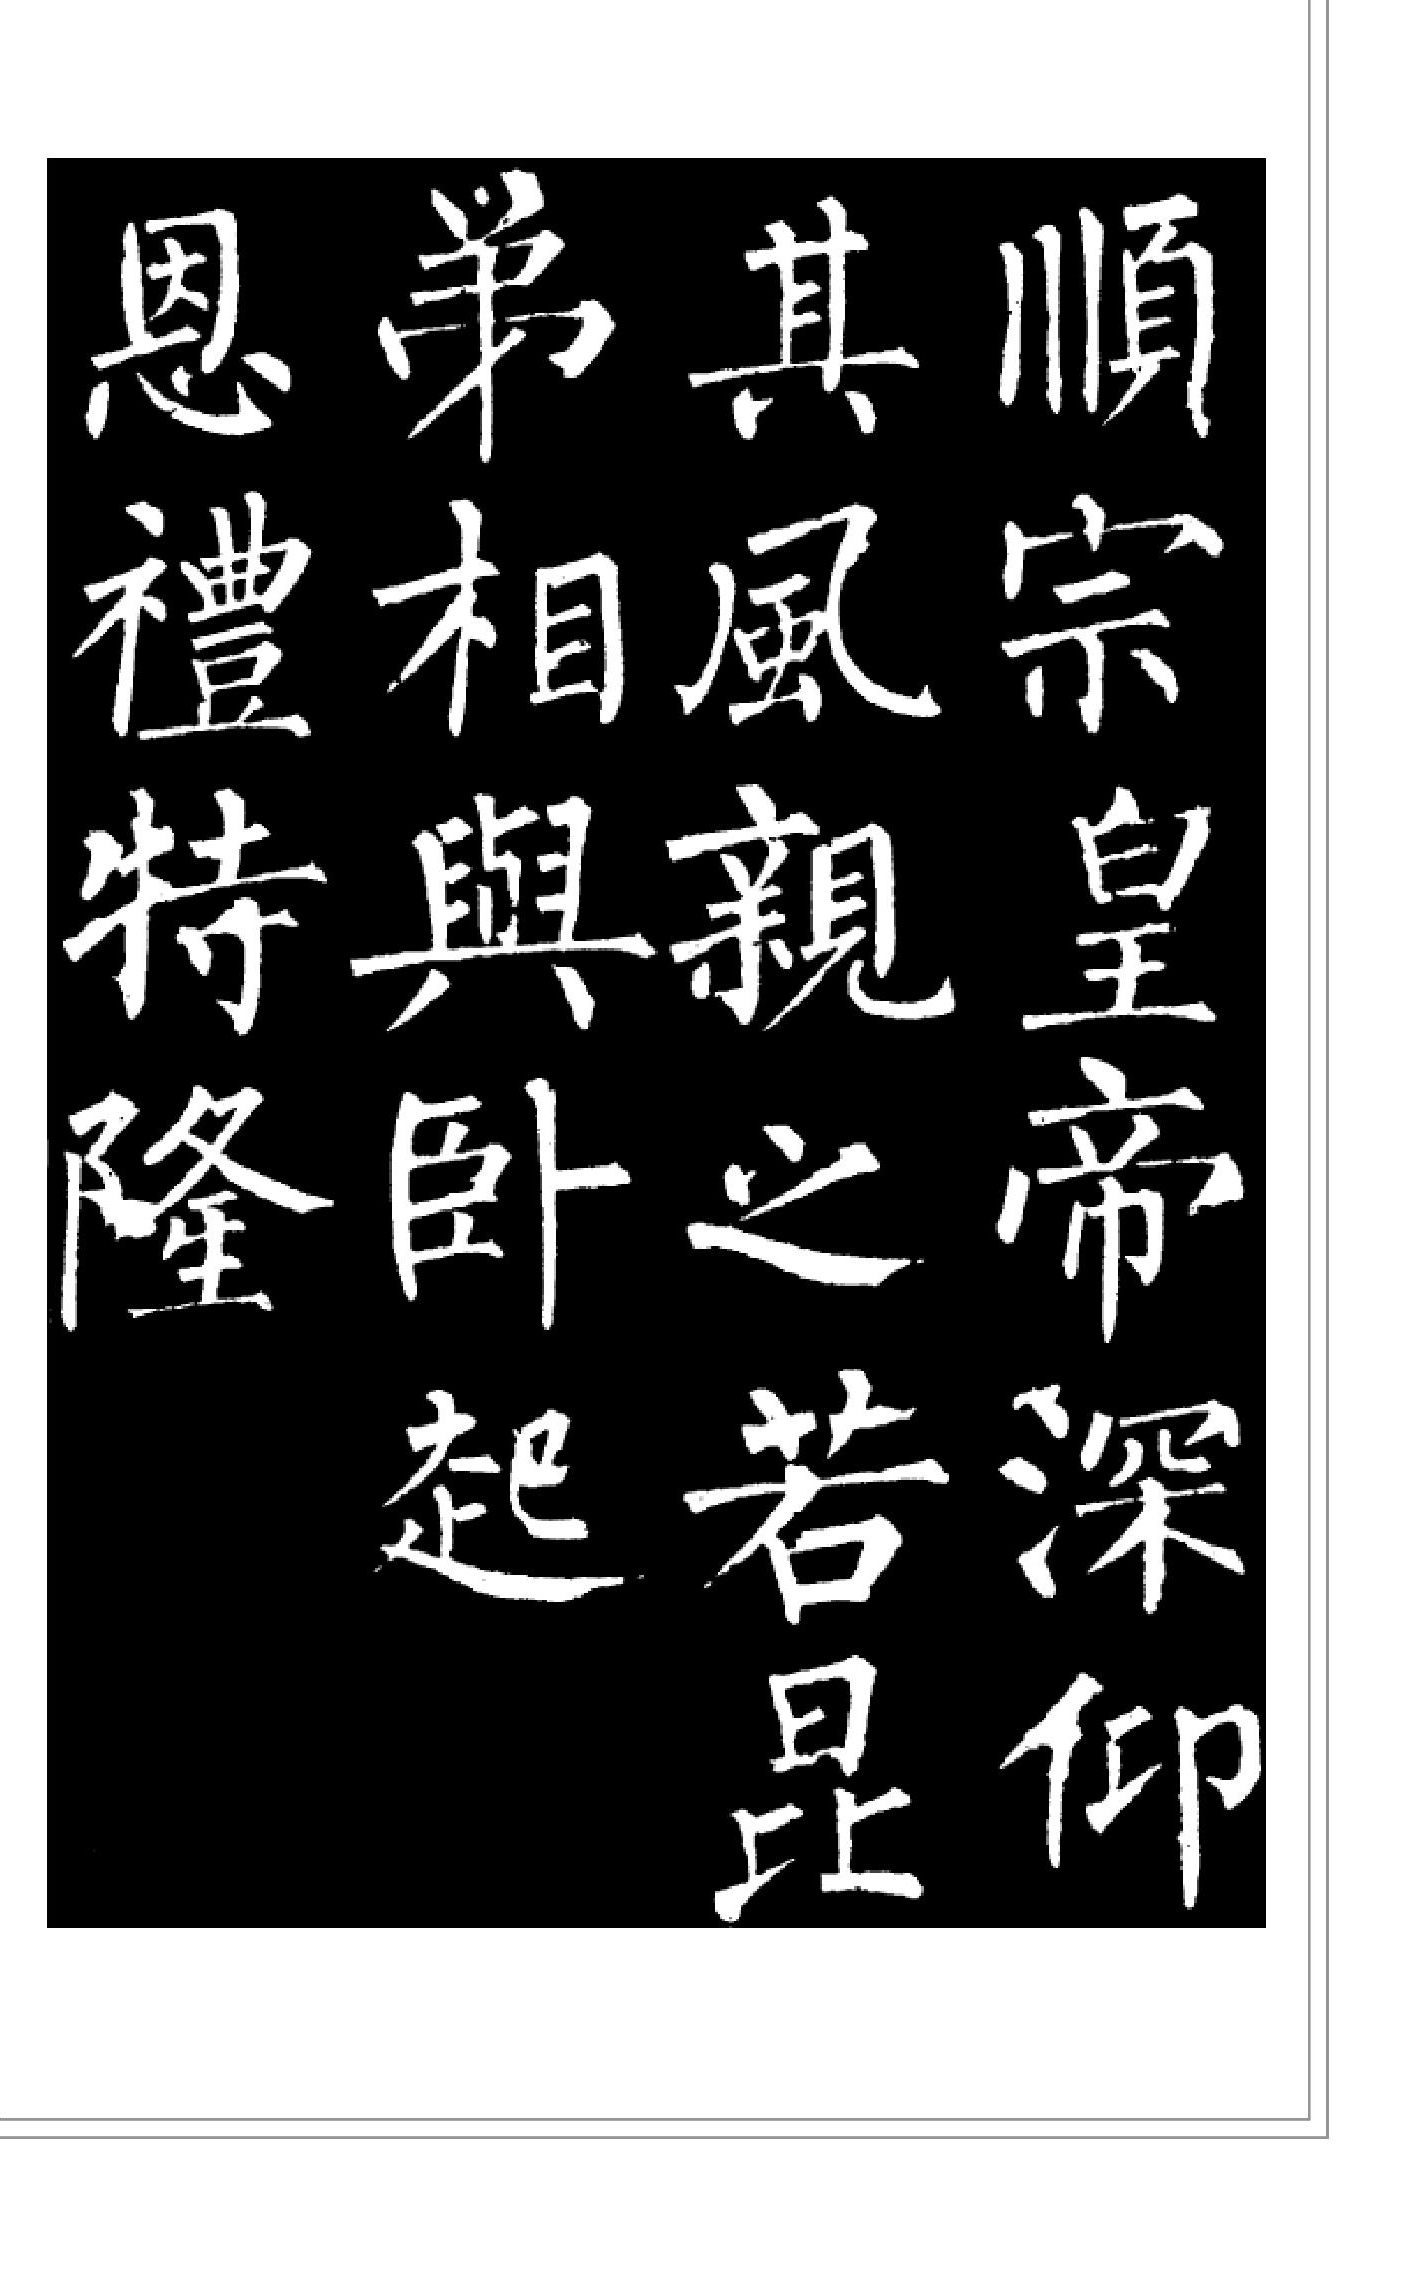 順宗皇帝深仰
其風親之若昆
弟相與卧起
恩禮特隆